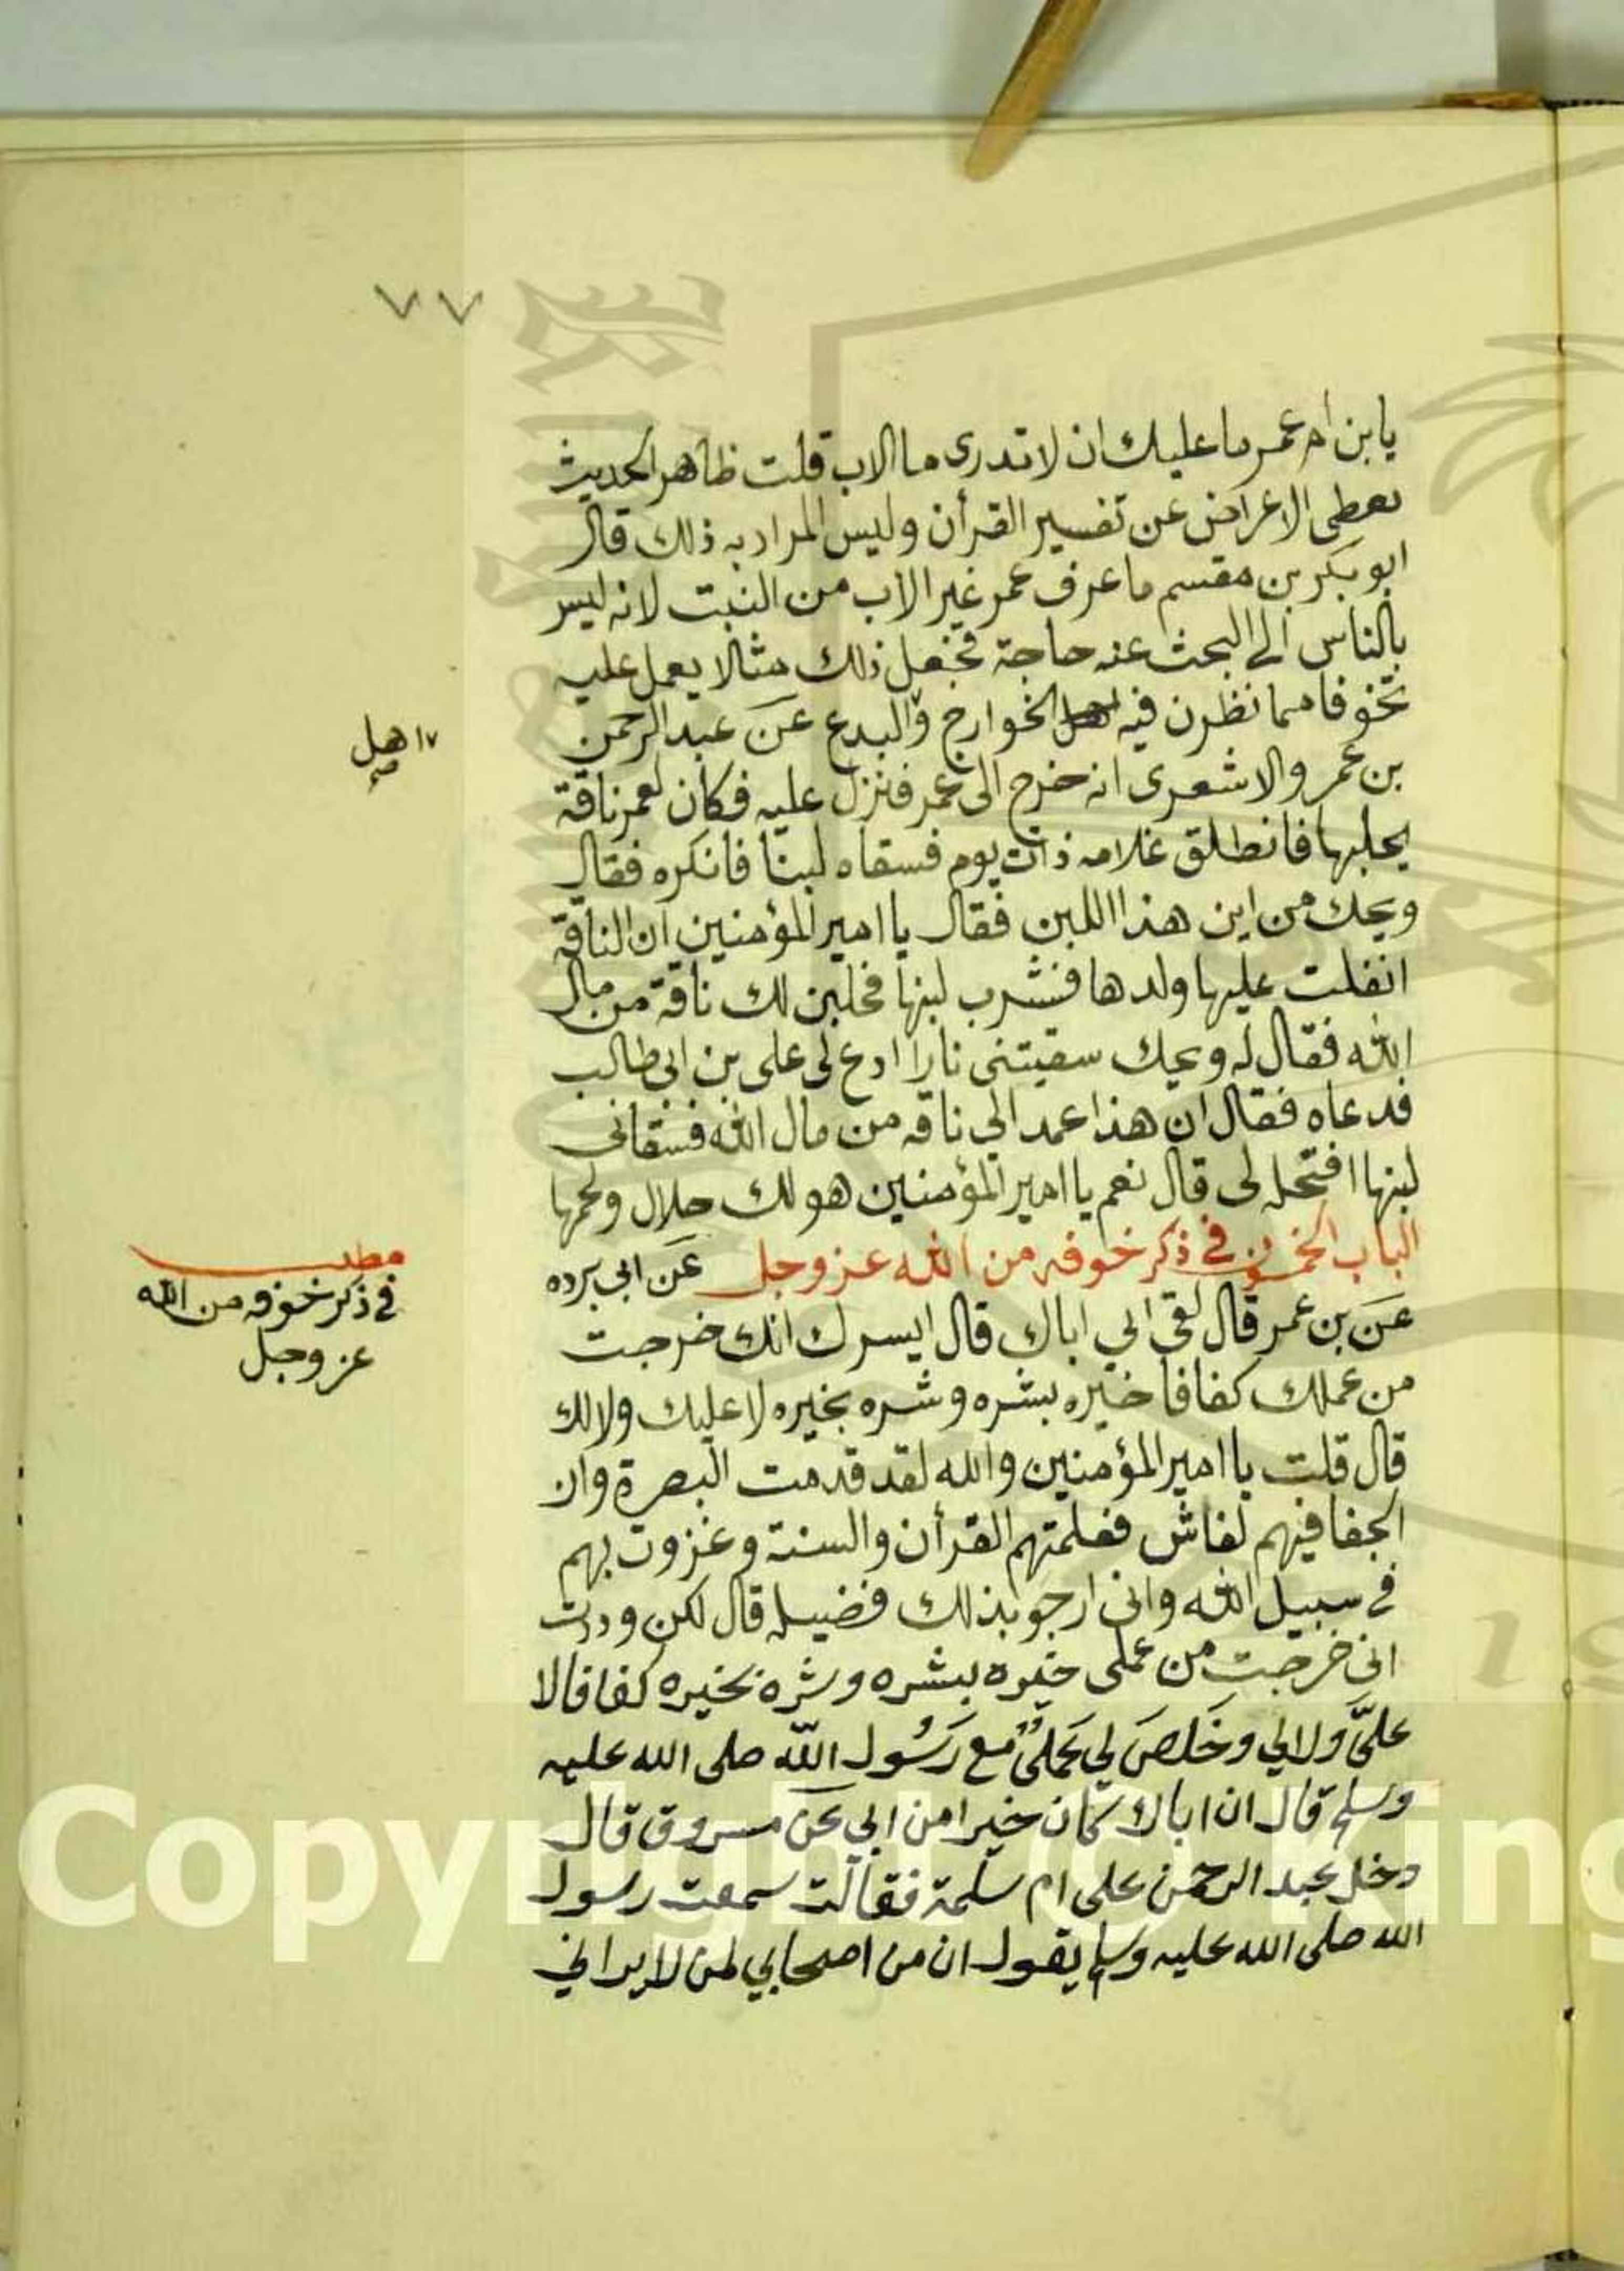 ٧٧
يا بن ام عمر ما عليك ان لا تدرى ما الاب قلت ظاهر الحديث
يعطى الاعراض عن تفسير القرأن وليس المراد به ذلك قال
ابو بكر بن مقسم ما عرف عمر غير الاب من النبت لانه ليس
بالناس الى البحث عنه حاجة فجعل ذلك مثالا يعمل عليه
تخوفا مما نظرن فيه الخوارج والبدع عن عبد الرحمن
اهل
صح
بن عمر والاشعرى انه خرج الى عمر فنزل عليه فكان لعمر ناقة
يحلبها فانطلق غلامه ذات يوم فسقاه لبنا فانكره فقال
ويحك من اين هذا اللبن فقال يا امير المؤمنين ان الناقة
انفلت عليها ولدها فشرب لبنها فحلبت لك ناقة من مال
الله فقال له ويحك سقيتنى نارا ادع لى على بن ابى طالب
فدعاه فقال ان هذا عمد الي ناقه من مال الله فسقانى
لبنها افتحله لى قال نعم يا امير المؤمنين هو لك حلال ولحمها
الباب الخمسون في ذكر خوفه من الله عز وجل عن ابي برده
مطلب
في ذكر خوفه من الله
عز وجل
عن بن عمر قال لقى ابي اباك قال ايسرك انك خرجت
من عملك كفافا خيره بشره وشره بخيره لا عليك ولا لك
قال قلت يا امير المؤمنين والله لقد قدمت البصرة وان
الجفا فيهم لفاش فعلمتهم القرأن والسنة وغزوت بهم
في سبيل الله وانى ارجو بذلك فضيله قال لكن وددت
انى خرجت من عملى خيره بشره وشره بخيره كفافا لا
عليّ ولا لي وخلص لي عملي مع رسول الله صلى الله عليه
وسلم قال ان اباك كان خيرا من ابي عن مسروق قال
دخل عبد الرحمن على ام سلمة فقالت سمعت رسول
الله صلى الله عليه وسلم يقول ان من اصحابي لمن لا يراني
Copyright © King